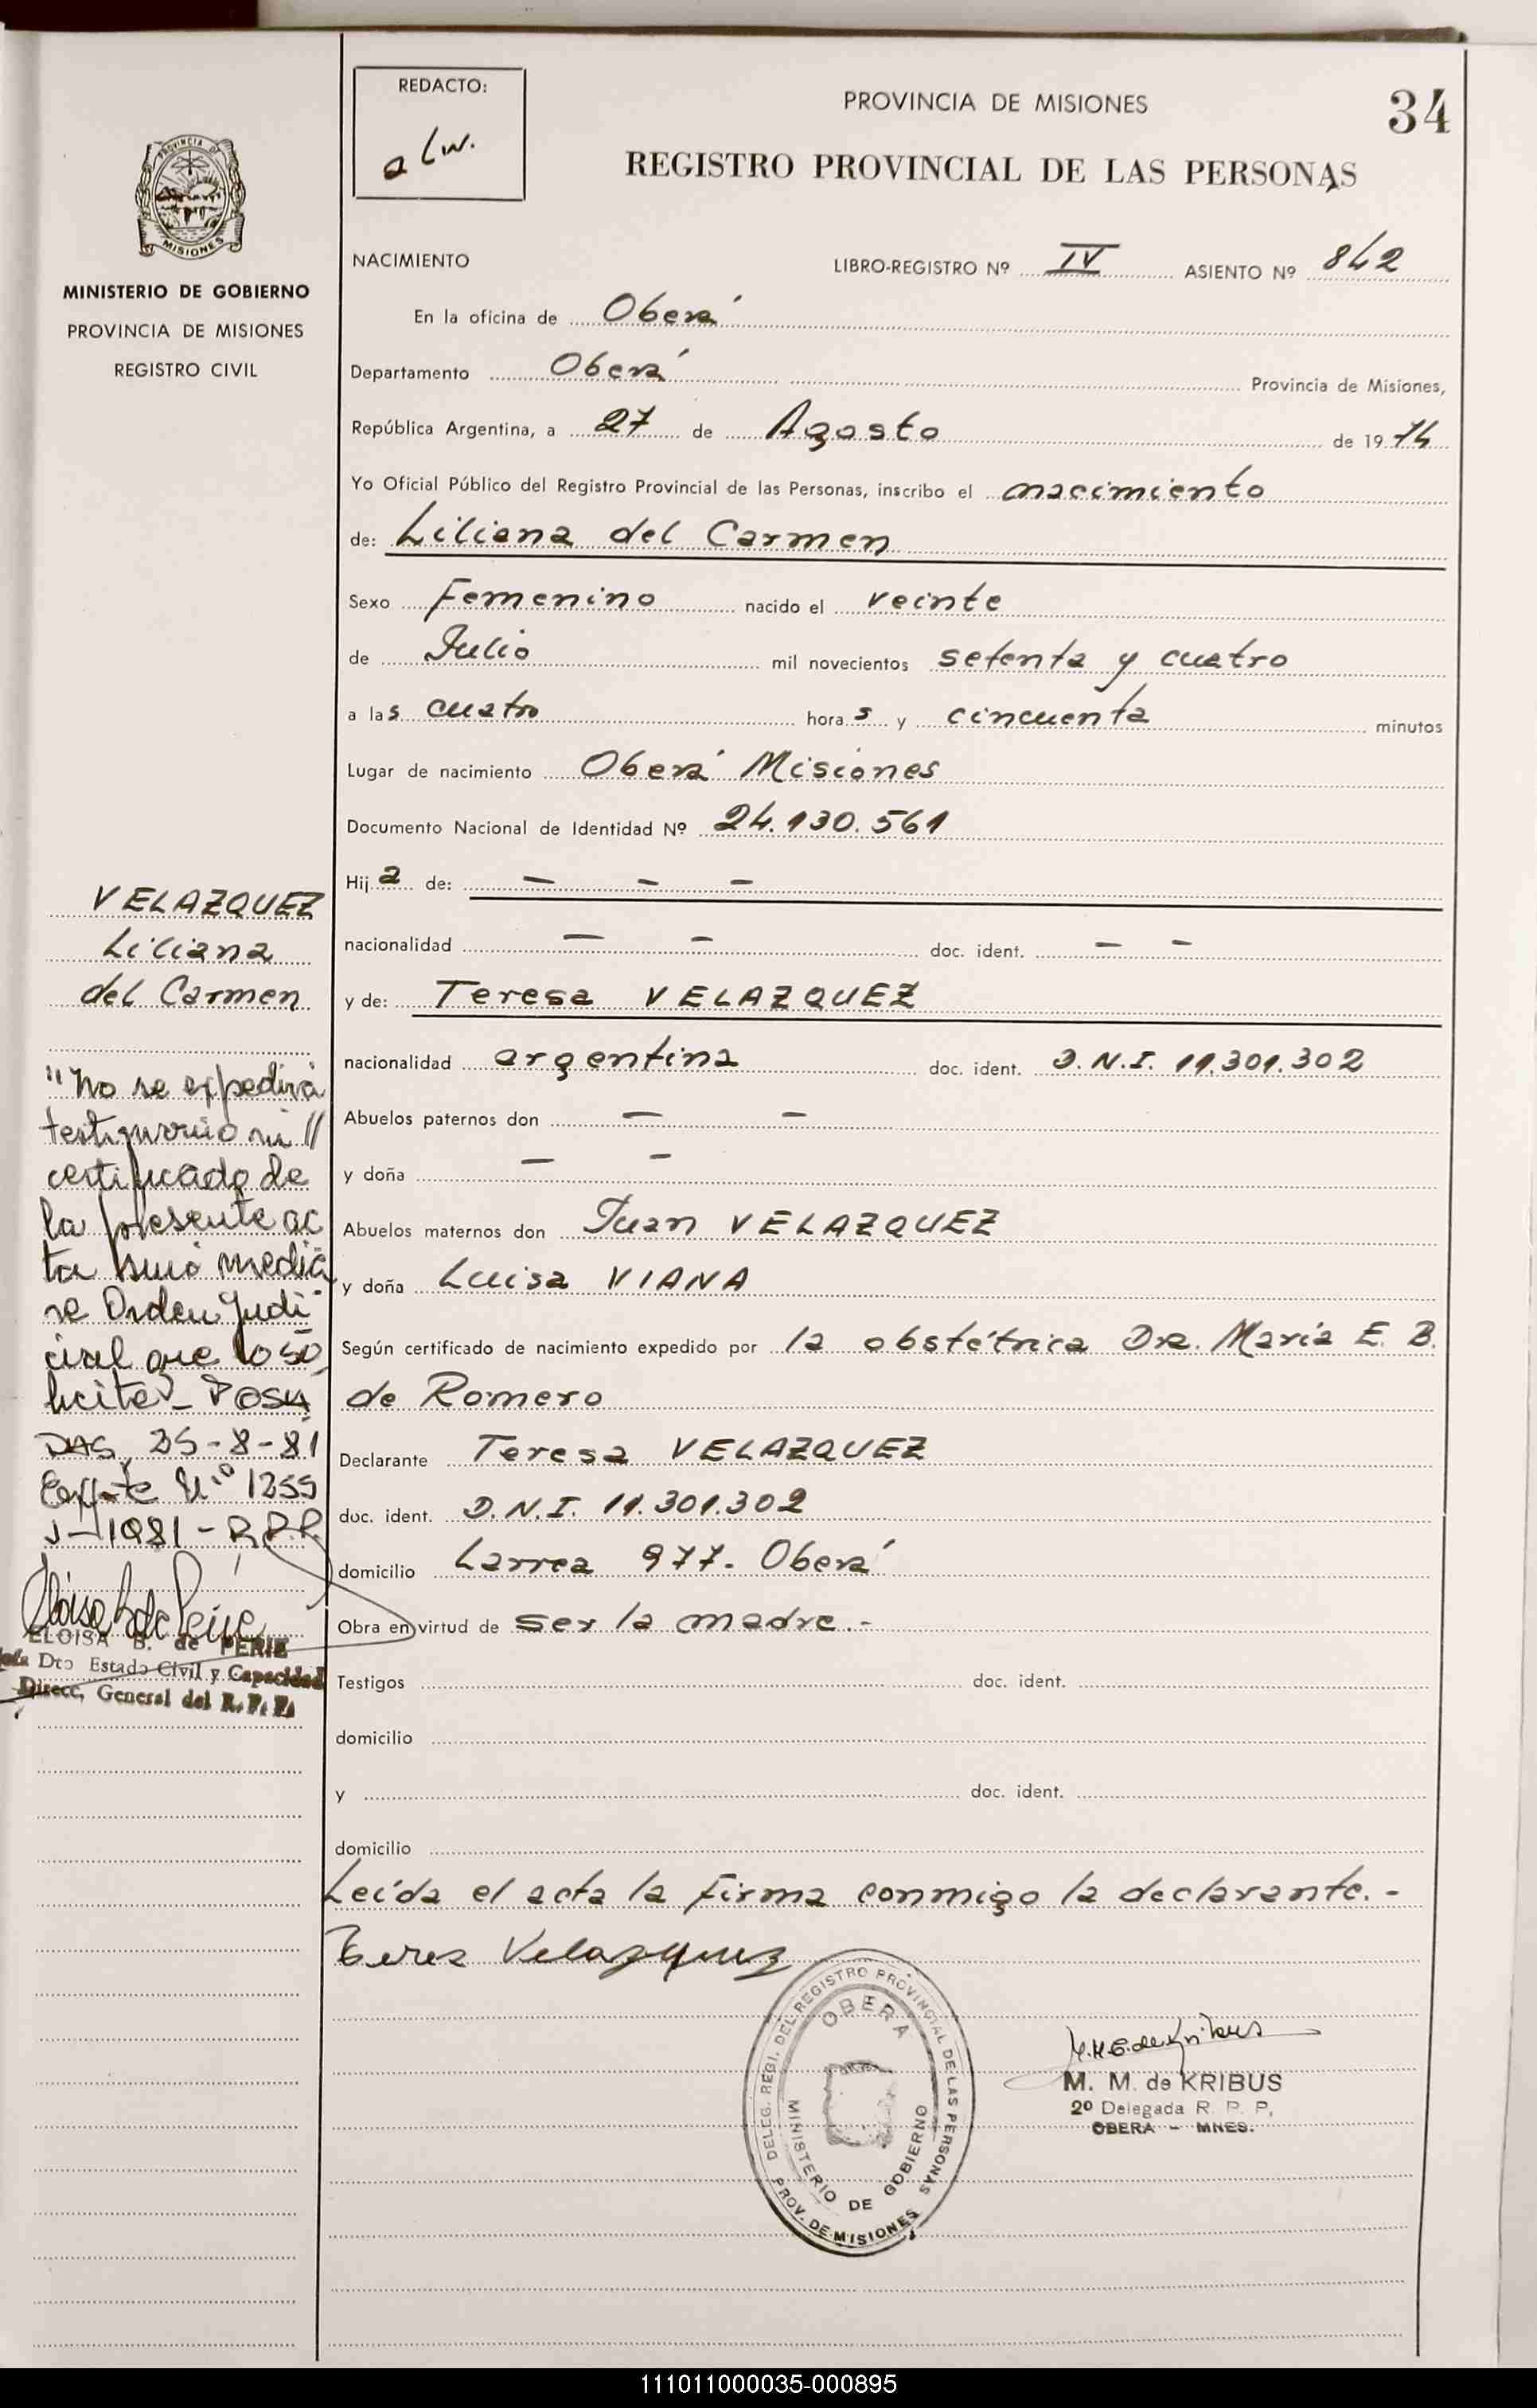 REDACTO:
PROVINCIA DE MISIONES
34
REGISTRO PROVINCIAL DE LAS PERSONAS
PROVINCIA DE
MISIONES
MINISTERIO DE GOBIERNO
PROVINCIA DE MISIONES
REGISTRO CIVIL
NACIMIENTO LIBRO-REGISTRO Nº IV ASIENTO Nº 842
En la oficina de Oberá
Departamento Oberá Provincia de Misiones,
República Argentina, a 27 de Agosto de 1974
Yo Oficial Público del Registro Provincial de las Personas, inscribo el nacimiento
de: Liliana del Carmen
Sexo Femenino nacido el veinte
de Julio mil novecientos setenta y cuatro
a las cuatro horas y cincuenta minutos
Lugar de nacimiento Oberá Misiones
Documento Nacional de Identidad Nº 24.130.561
Hija de: — — —
nacionalidad — — doc. ident. — —
y de: Teresa VELAZQUEZ
nacionalidad argentina doc. ident. D.N.I. 11.301.302
Abuelos paternos don — —
y doña — —
Abuelos maternos don Juan VELAZQUEZ
y doña Luisa VIANA
Según certificado de nacimiento expedido por la obstétrica Dra. María E. B.
de Romero
Declarante Teresa VELAZQUEZ
doc. ident. D.N.I. 11.301.302
domicilio Larrea 977- Oberá
Obra en virtud de ser la madre.-
Testigos doc. ident.
domicilio
y doc. ident.
domicilio
Leída el acta la firma conmigo la declarante.-
Teresa Velazquez
VELAZQUEZ
Liliana
del Carmen
"No se expedirá
testimonio ni //
certificado de
la presente ac
ta sinó media
ne Orden Judi
cial que lo so
licite" - POSA
DAS, 25-8-81
Expte Nº 1255
J-1981 - R.P.P.
ELOISA B. de PERIE
Jefa Dto Estado Civil y Capacidad
Direcc. General del R. P. P.
DELEG. REGI. DEL REGISTRO PROVINCIAL DE LAS PERSONAS
OBERA
MINISTERIO DE GOBIERNO
PROV. DE MISIONES
M. M. de KRIBUS
2º Delegada R. P. P.
OBERA - MNES.
111011000035-000895